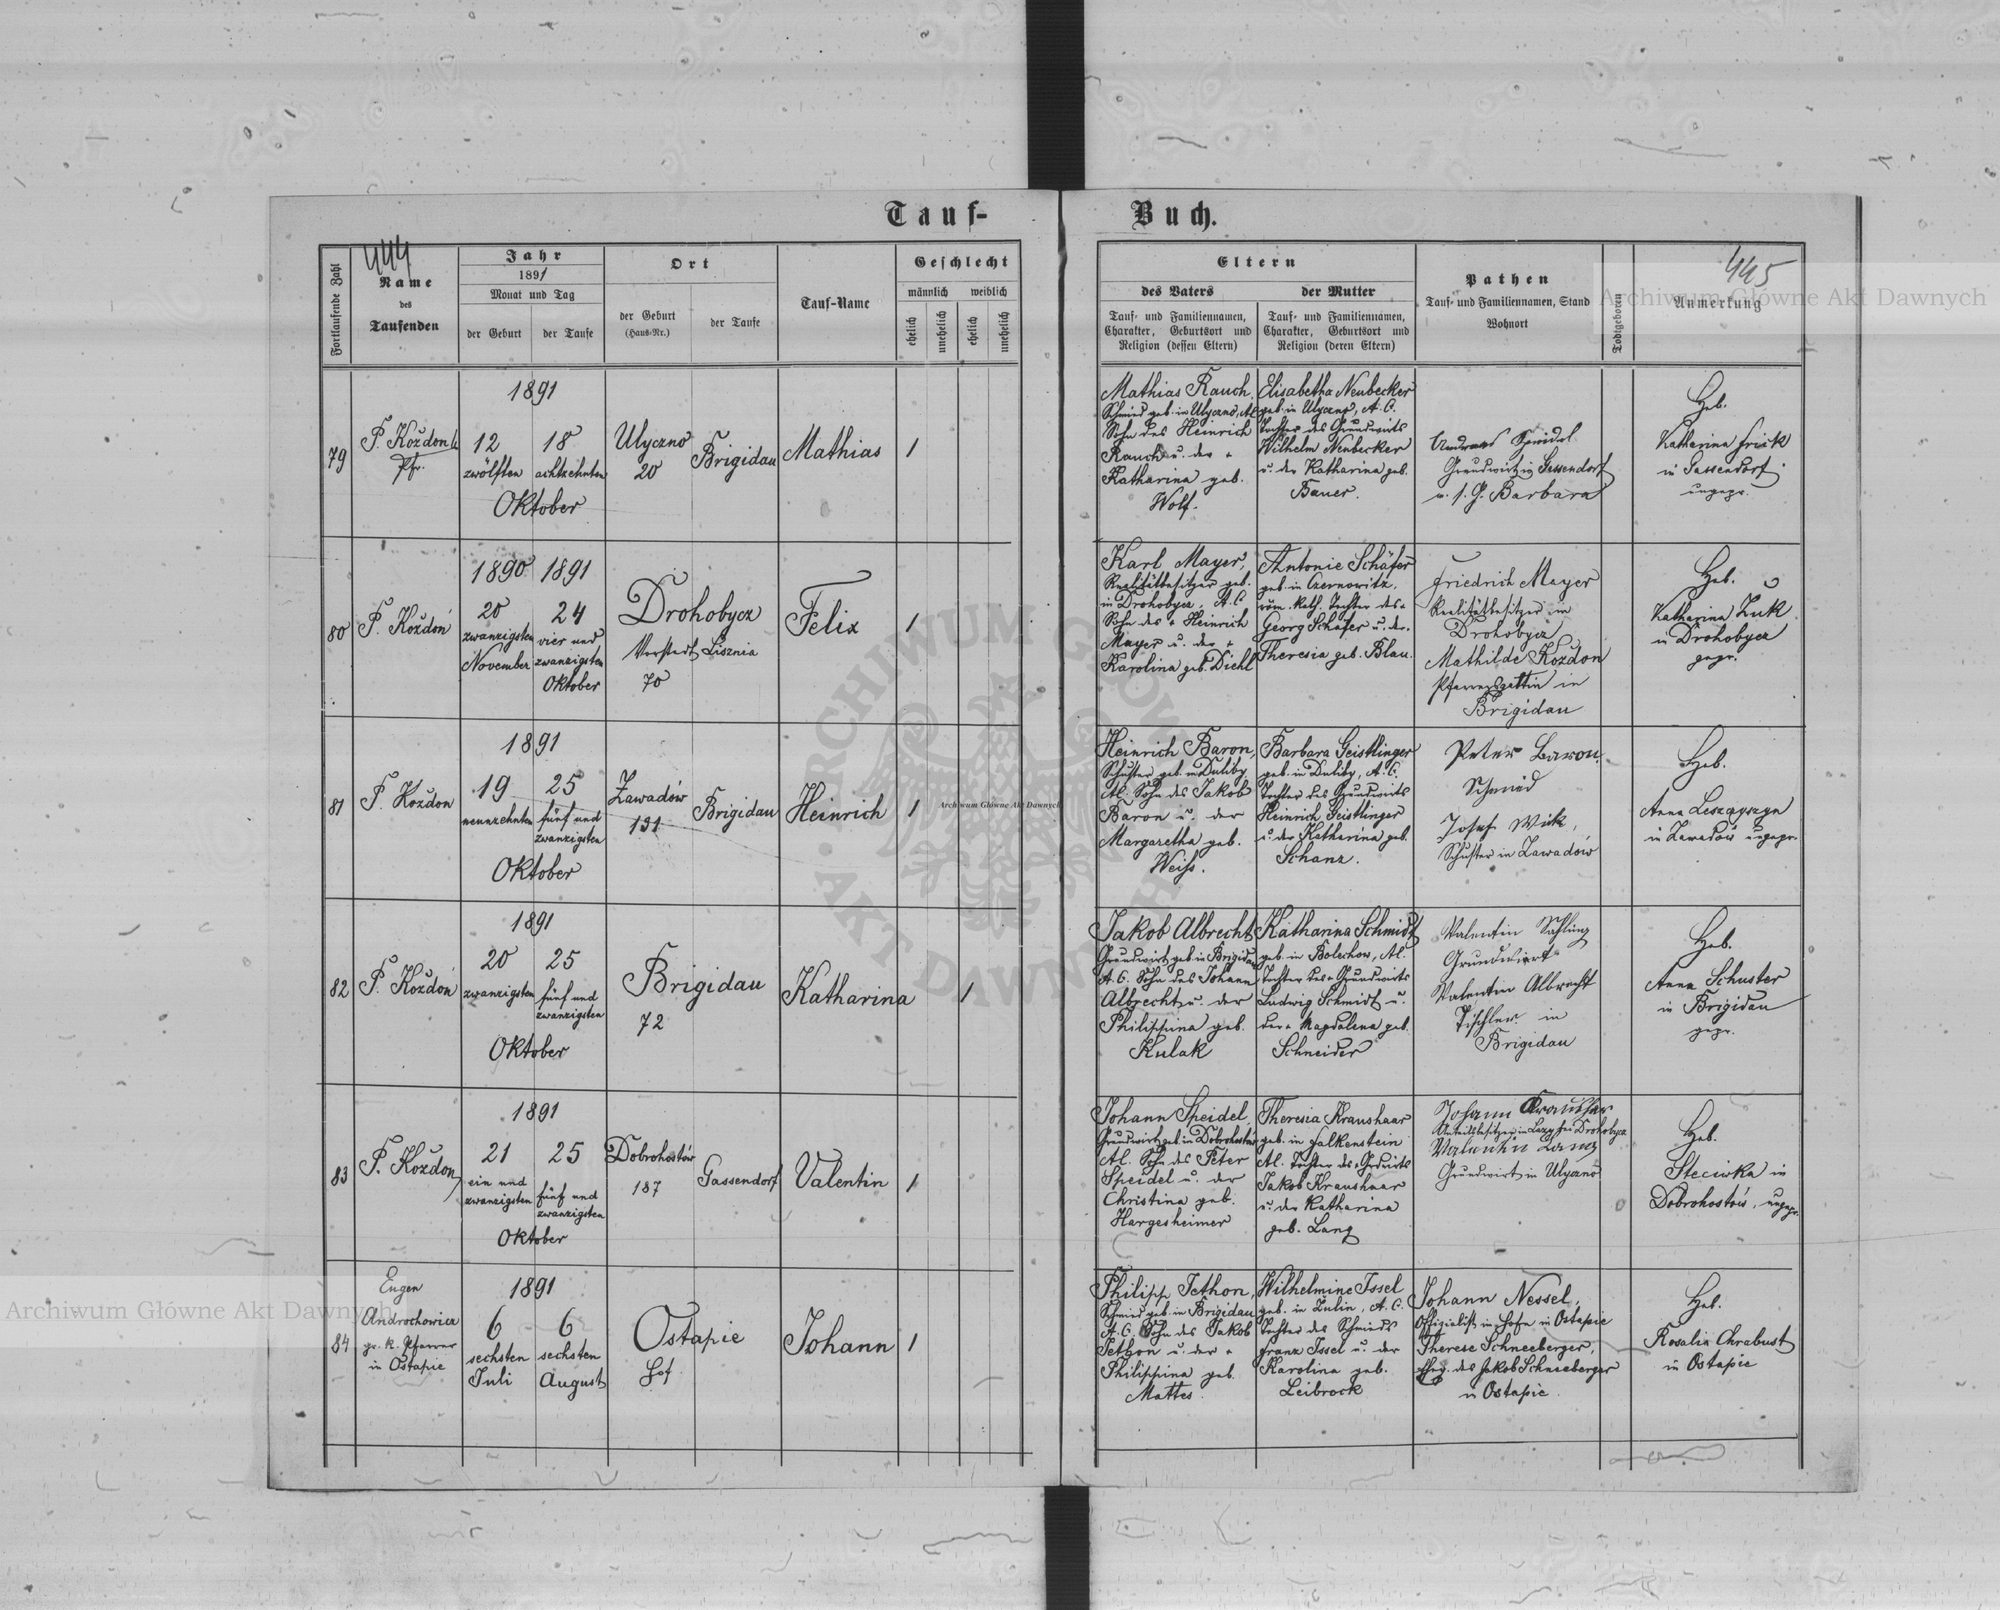 Tauf- Buch.
444
445
Fortlaufende Zahl
Name
des
Taufenden
Jahr
1891
Monat und Tag
der Geburt
der Taufe
Ort
der Geburt
(Haus-Nr.)
der Taufe
Tauf-Name
Geschlecht
männlich weiblich
ehelich
unehelich
ehelich
unehelich
Eltern
des Vaters
der Mutter
Tauf- und Familiennamen,
Charakter, Geburtsort und
Religion (dessen Eltern)
Tauf- und Familiennamen,
Charakter, Geburtsort und
Religion (deren Eltern)
Pathen
Tauf- und Familiennamen, Stand
Wohnort
Todtgeboren
Anmerkung
79
F. Koždon
Pfr.
1891
12
zwölften
18
achtzehnten
Oktober
Ulyczno
20
Brigidau
Mathias
1
Mathias Rauch,
Schmied geb. in Ulyczno, A.C.
Sohn des Heinrich
Rauch u. der +
Katharina geb.
Wolf.
Elisabetha Neubecker
geb. in Ulyczno, A.C.
Tochter des Grundwirts
Wilhelm Neubecker
u. der Katharina geb.
Bauer.
Andreas Speidel
Grundwirt in Gassendorf
u. s. G. Barbara
Heb.
Katharina Frick
in Gassendorf
ungepr.
80
F. Koždoń
1890 1891
20
zwanzigsten
November
24
vier und
zwanzigsten
Oktober
Drohobycz
Vorstadt Lisznia
70
Felix
1
Karl Mayer,
Realitätbesitzer geb.
in Drohobycz, A.C
Sohn des + Heinrich
Mayer u. der +
Karolina geb. Diehl
Antonie Schäfer
geb. in Czernowitz,
röm. kath. Tochter des +
Georg Schäfer u. der +
Theresia geb. Blau.
Friedrich Mayer
Realitätbesitzer in
Drohobycz
Mathilde Koždon
Pfarrersgattin in
Brigidau
Heb.
Katharina Żuk
in Drohobycz
gepr.
81
F. Koždon
1891
19
neunzehnten
25
fünf und
zwanzigsten
Oktober
Zawadów
131
Brigidau
Heinrich
1
Heinrich Baron,
Schuster geb. in Duliby,
A.C. Sohn des Jakob
Baron u. der
Margaretha geb.
Weiss.
Barbara Geistlinger
geb. in Duliby, A.C.
Tochter des Grundwirts
Heinrich Geistlinger
u. der Katharina geb.
Schanz.
Peter Baron,
Schmied
Josef Wick,
Schuster in Zawadów
Heb.
Anna
in Zawadów ungepr.
82
F. Koždoń
1891
20
zwanzigsten
25
fünf und
zwanzigsten
Oktober
Brigidau
72
Katharina
1
Jakob Albrecht
Grundwirt geb. in Brigidau
A.C. Sohn des Johann
Albrecht u. der
Philippina geb.
Kulak
Katharina Schmidt
geb. in Bolechow, A.C.
Tochter des + Grundwirts
Ludwig Schmidt u.
der + Magdalena geb.
Schneider
Valentin Sahling
Grundwirt
Valentin Albrecht
Tischler in
Brigidau
Heb.
Anna Schuster
in Brigidau
gepr.
83
F. Koždon
1891
21
ein und
zwanzigsten
25
fünf und
zwanzigsten
Oktober
Dobrohostów
187
Gassendorf
Valentin
1
Johann Speidel,
Grundwirt geb. in Dobrohostów
A.C. Sohn des Peter
Speidel u. der
Christina geb.
Hargesheimer
Theresia Kraushaar
geb. in Falkenstein
A.C. Tochter des + Grdwirts
Jakob Kraushaar
u. der Katharina
geb. Lang
Johann Kraushar
Valentin Lang
Grundwirt in Ulyczno
Heb.
Steciwka in
Dobrohostów, ungepr.
84
Eugen
Androchowicz
gr. k. Pfarrer
in Ostapie
1891
6
sechsten
Juli
6
sechsten
August
Ostapie
Hof
Johann
1
Philipp Jethon,
Schmied geb. in Brigidau
A.C. Sohn des Jakob
Jethon u. der +
Philippina geb.
Mattes.
Wilhelmine Issel
geb. in Żulin, A.C.
Tochter des Schmieds
Franz Issel u. der
Karolina geb.
Leibrock
Johann Nessel,
Offizialist in Hofe in Ostapie
Therese Schneeberger,
Eheg. des Jakob Schneeberger
in Ostapie.
Heb.
Rosalia Chrabust
in Ostapie
Archiwum Główne Akt Dawnych
Archiwum Główne Akt Dawnych
Archiwum Główne Akt Dawnych
ARCHIWUM GŁÓWNE AKT DAWNYCH